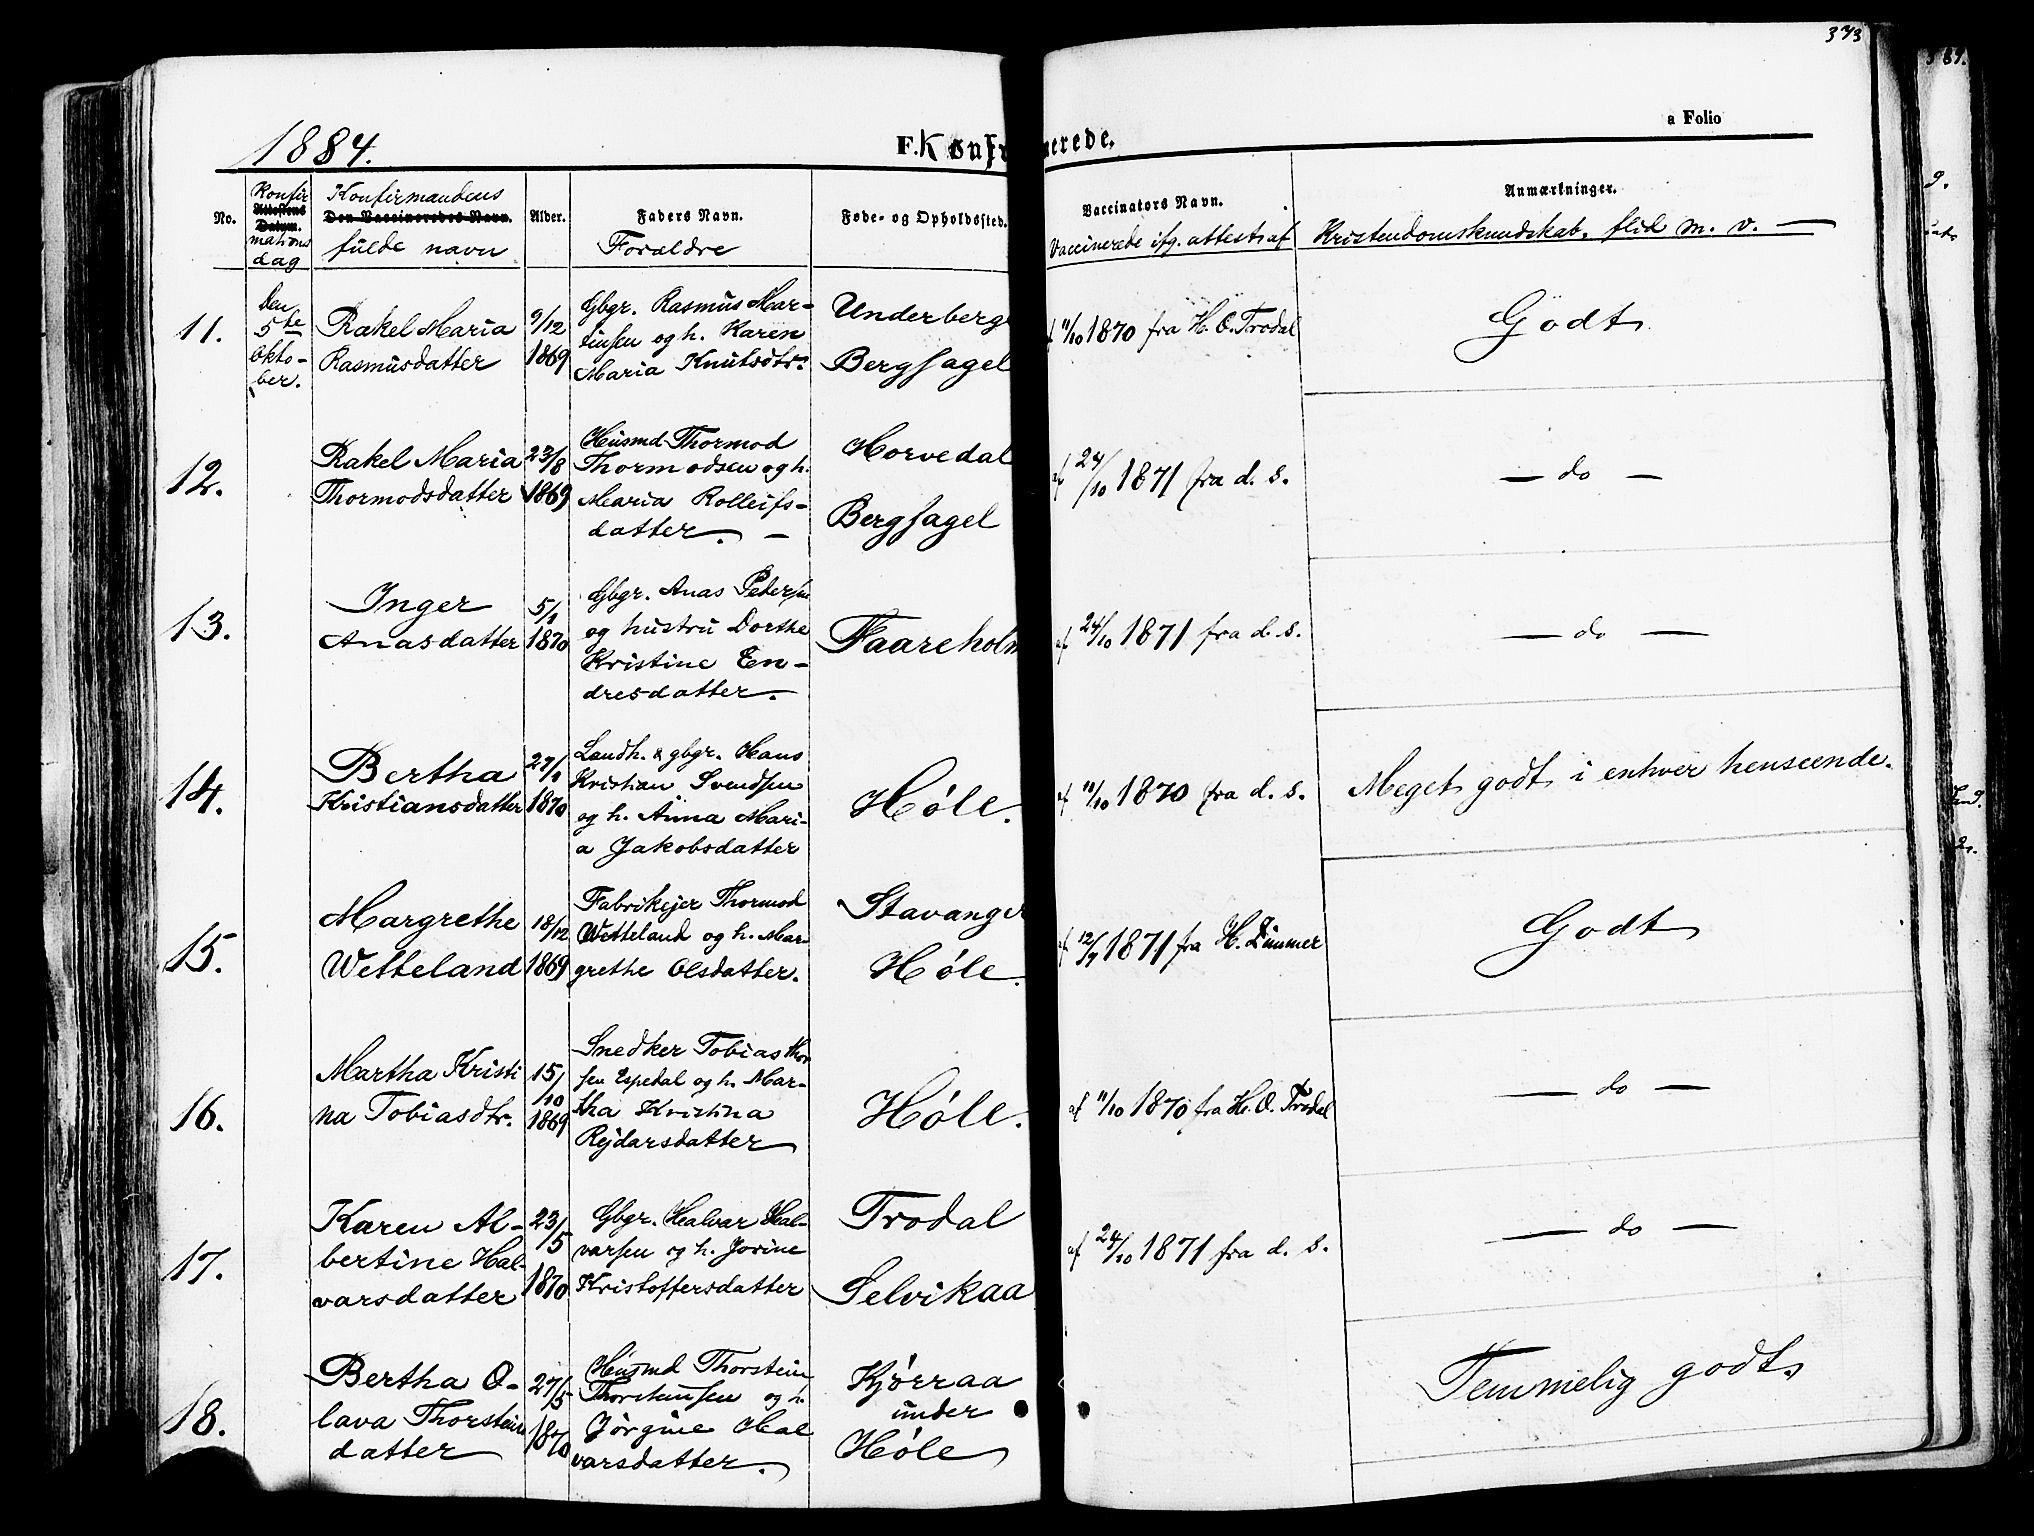 373
1884.
F. Konf
erede.
a Folio
No.
Konfir
Attestens
Datum.
mations
dag
Konfirmandens
Den Vaccineredes Navn.
fulde navn
Alder.
Faders Navn.
Forældre
Føde- og Opholdssted.
Vaccinators Navn.
Vaccinerede ifg. attest af
Anmærkninger.
Kristendomskundskab, flid m. v. —
11.
Den
5te
Okto-
ber.
Rakel Maria
Rasmusdatter
9/12
1869
Gbgr. Rasmus Mar-
tinsen og h. Karen
Maria Knutsdtr.
Underberge
Bergsagel
af 11/10 1870 fra H. O. Trodal
Godt
12.
Rakel Maria
Thormodsdatter
23/8
1869
Husmd Thormod
Thormodsen og h.
Maria Rolleifs-
datter. —
Horvedal
Bergsagel
af 24/10 1871 fra d. s.
— do —
13.
Inger
Anasdatter
5/1
1870
Gbgr. Anas Pedersen
og hustru Dorthe
Kristine En-
dresdatter.
Faareholm
af 24/10 1871 fra d. s.
— do —
14.
Bertha
Kristiansdatter
27/1
1870
Landh. & gbgr. Hans
Kristian Svendsen
og h. Anna Mari-
a Jakobsdatter
Høle.
af 11/10 1870 fra d. s.
Meget godt i enhver henseende.
15.
Margrethe
Wetteland
18/12
1869
Fabrikejer Thormod
Wetteland og h. Mar-
grethe Olsdatter.
Stavanger
Høle.
af 12/7 1871 fra H. Zimmer
Godt
16.
Martha Kristi
na Tobiasdtr.
15/10
1869
Snedker Tobias Thor
sen Espedal og h. Mar-
tha Kristina
Rejdarsdatter
Høle.
af 11/10 1870 fra H. O. Trodal
— do —
17.
Karen Al-
bertine Hal-
varsdatter
23/5
1870
Gbgr. Halvar Hal-
varsen og h. Jorine
Kristoffersdatter
Trodal
Selvikaa
af 24/10 1871 fra d. s.
— do —
18.
Bertha O-
lava Thorsteins
datter
27/5
1870
Husmd Thorstein
Thorsteinsen og h.
Jørgine Hal
varsdatter.
Kjørraa
under
Høle
Temmelig godt.